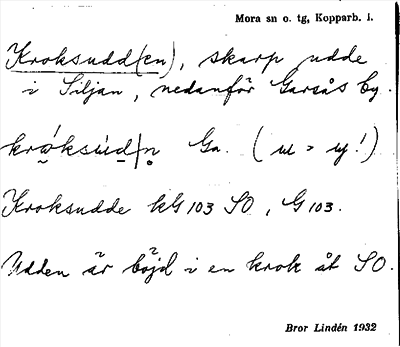 Mora sn o. tg, Kopparb. l.
Kroksudd(en), skarp udde
i Siljan, nedanför Garsås by.
Ga. (
Kroksudde kG 103 SO, G 103.
Udden är böjd i en krok åt SO.
Bror Lindén 1932